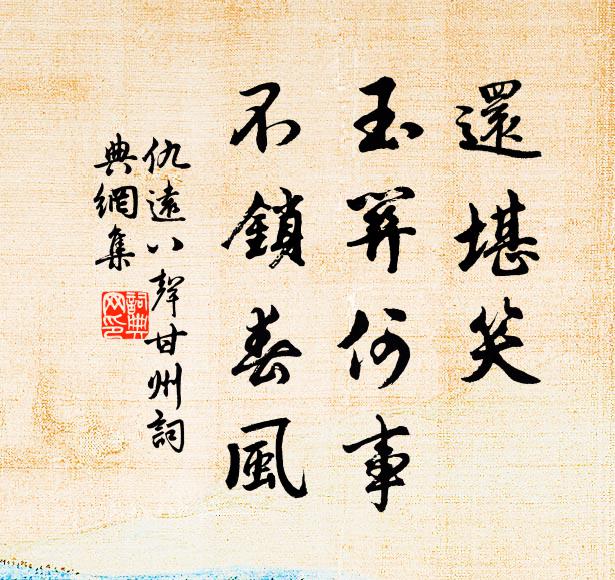 還堪笑
玉笄何事
不鎖春風
仇遠八聲甘州詞
典網集
詞典
网印